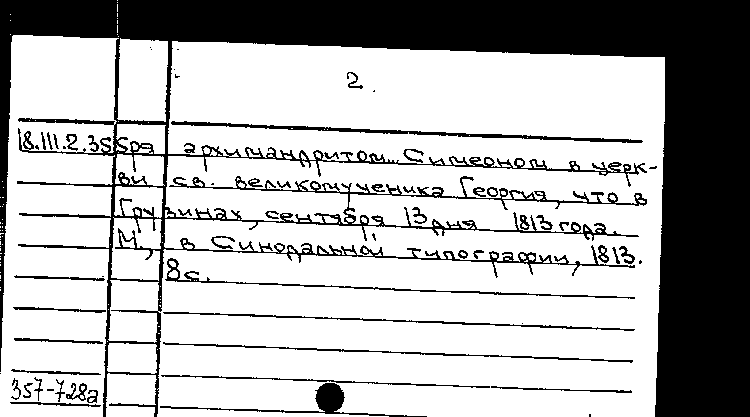 2.
18.III.2.355бря архимандритом... Симеоном в церк-
ви св. великомученика Георгия, что в
Грузинах, сентября 13 дня 1813 года.
М., в Синодальной типографии, 1813.
8с.
357-728а